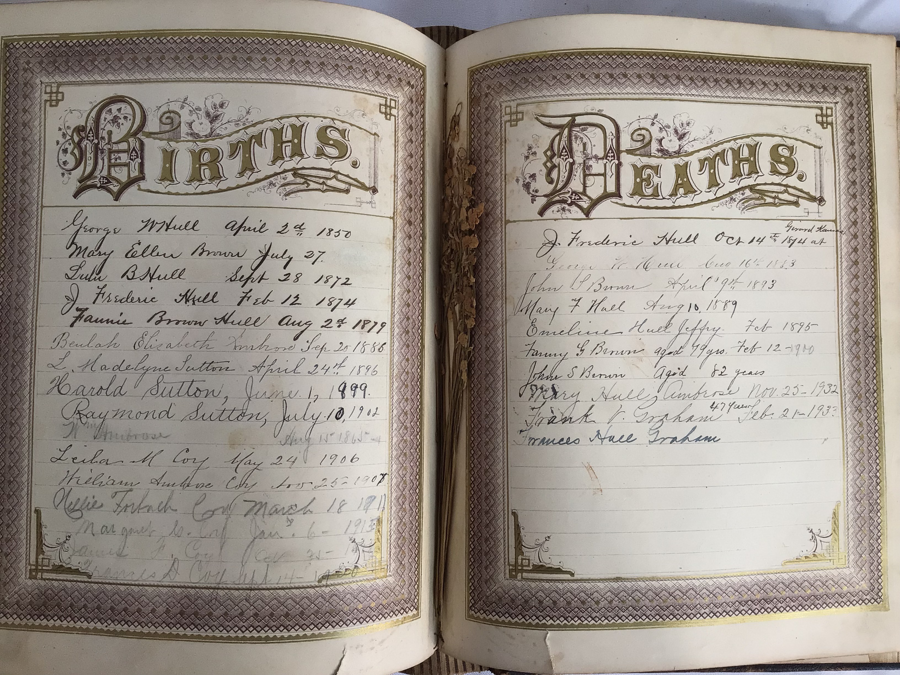 BIRTHS.
George W Hull April 2d, 1850
Mary Ellen Brown July 27.
Lulu B Hull Sept 28 1872
J Frederic Hull Feb 12 1874
Fannie Brown Hull Aug 2d 1879
Beulah Elisabeth Sep 20 1886
L. Madelyne Sutton April 24th 1896
Harold Sutton, June 1, 1899.
Raymond Sutton, July 10, 1902
Wm Ambrose Aug 15 1865
Leila M Coy May 24 1906
William Ambrose Coy Nov 25 1907
Nellie Coy March 18 1911
Margaret G. Coy Jan. 6 - 1913
Coy
Francis D Coy
DEATHS.
Girard
J. Frederic Hull Oct 14th 1874 at
George W Hull Aug 16th 1883
John S Brown April 9th 1893
Mary F Hull Aug 10, 1889
Emeline Hull Jeffry. Feb 1895
Fanny G Brown aged 79 yrs. Feb 12 - 1900
John S Brown Aged 82 years
Mary Hull Ambrose Nov. 25 - 1932
Frank V. Graham 47 years Feb - 21 - 193
Frances Hull Graham